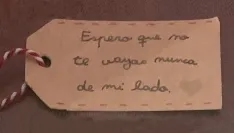 Espero que no
te vayas nunca
de mi lado.